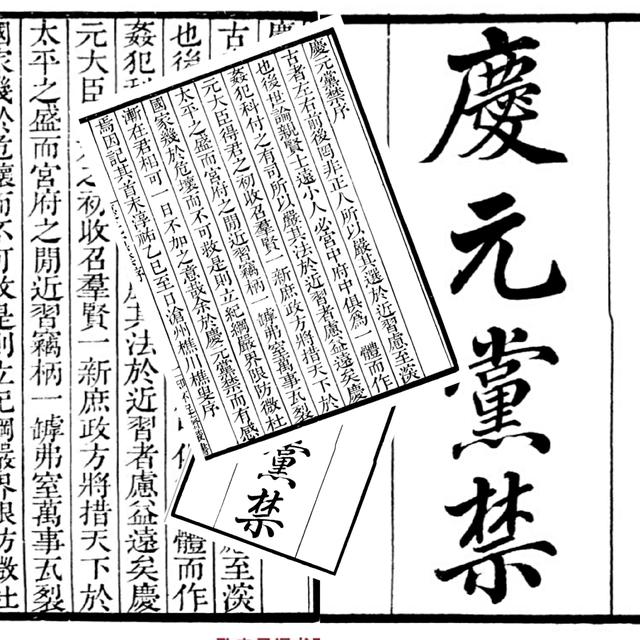 慶元黨禁
慶元黨禁序
古者左右前後罔非正人所以嚴其選於近習慮至深
也後世論親賢士遠小人必宮中府中俱為一體而作
姦犯科付之有司所以嚴其法於近習者慮益遠矣慶
元大臣得君之初收召羣賢一新庶政方將措天下於
太平之盛而宮府之間近習竊柄一罅弗窒萬事瓦裂
國家幾於危壞而不可救是則立紀綱嚴界限防微杜
漸在君相可一日不加之意哉余於慶元黨禁而有感
焉因記其首末淳祐乙巳至日滄州樵川樵叟序
黨禁
慶
古 至深
也後 體而作
姦犯 其法於近習者慮益遠矣慶
元大臣 之初收召羣賢一新庶政方將措天下於
太平之盛而宮府之間近習竊柄一罅弗窒萬事瓦裂
國家幾於危壞而不可救是則立紀綱嚴界限防微杜